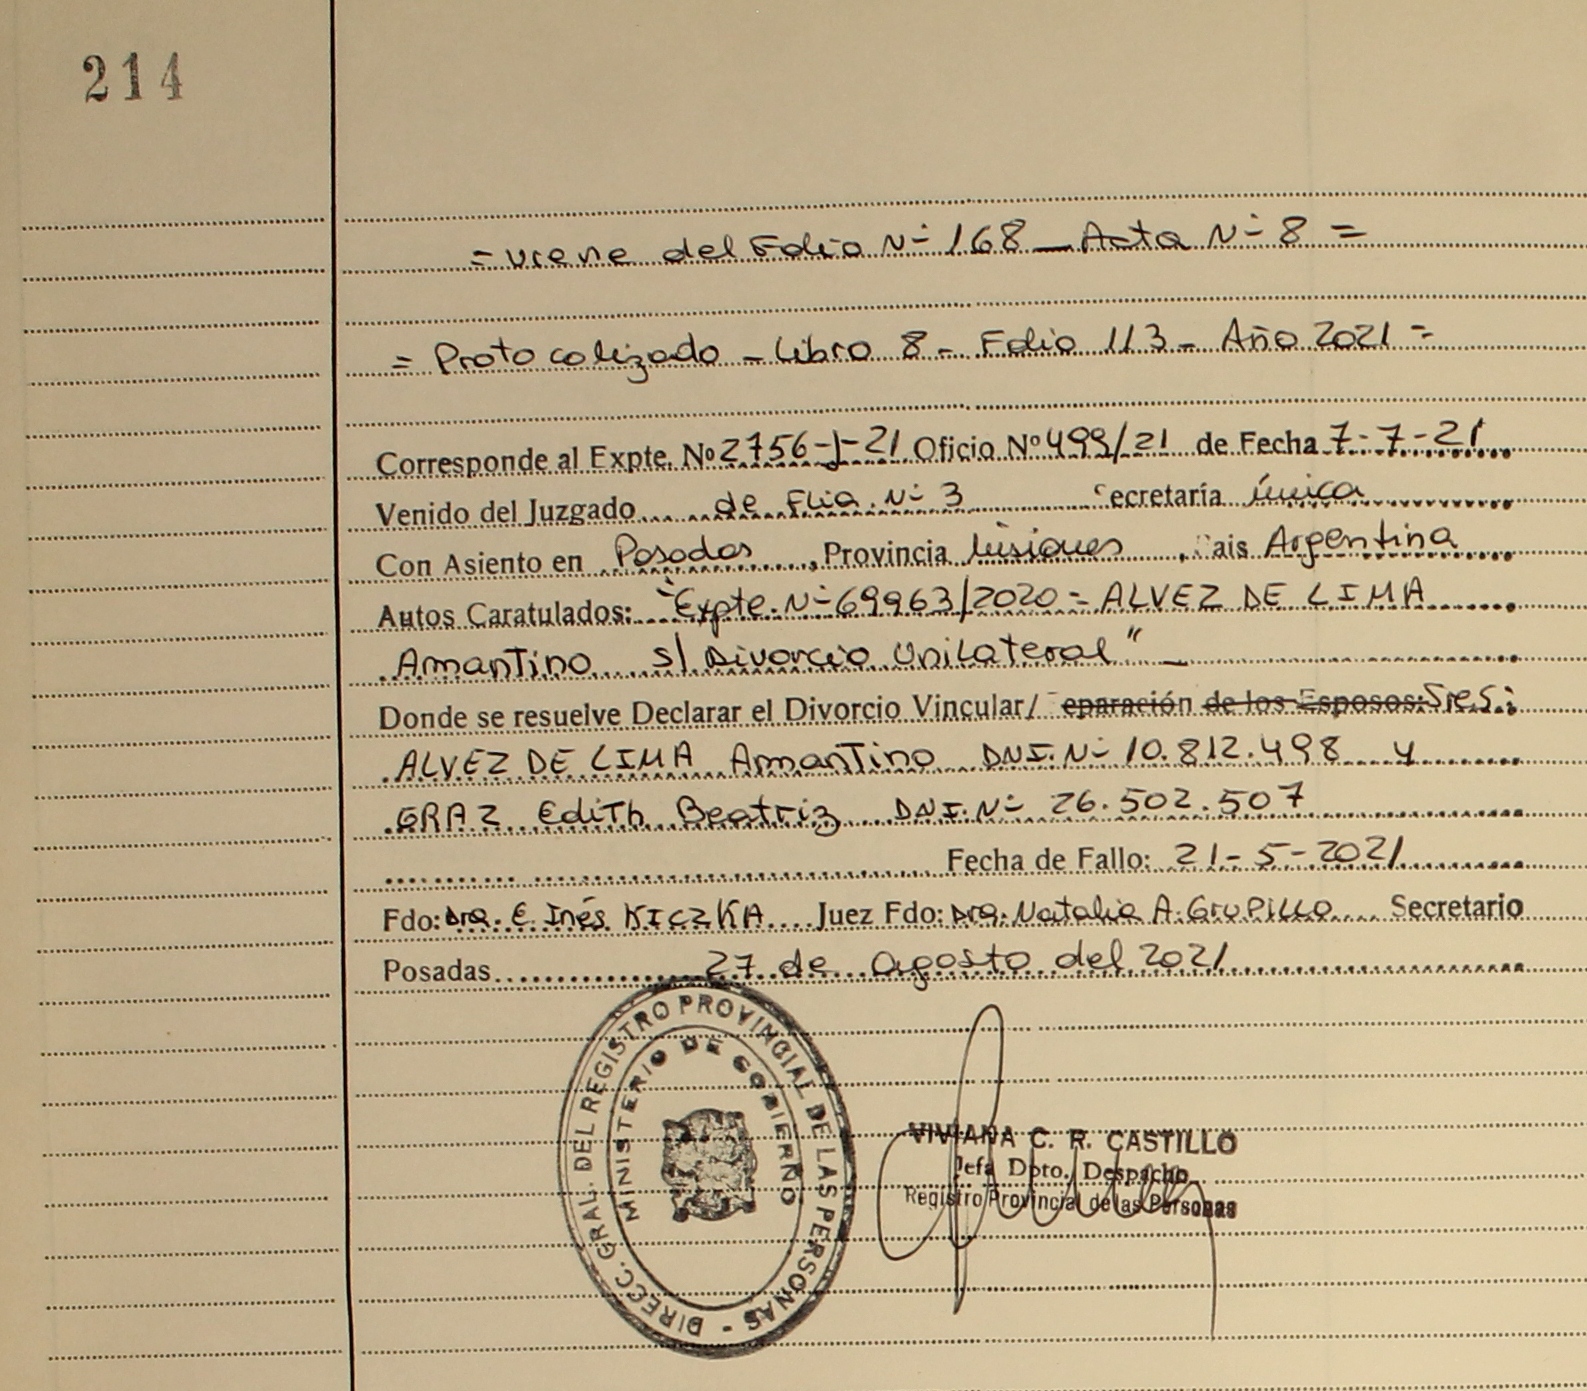 214
= viene del Folio Nº 168 - Acta Nº 8 =
= Protocolizado - Libro 8 - Folio 113 - Año 2021 =
Corresponde al Expte. Nº 2756-J-21 Oficio Nº 499/21 de Fecha 7-7-21
Venido del Juzgado de Flia. Nº 3 ecretaría Única
Con Asiento en Posadas, Provincia Misiones, ais Argentina
Autos Caratulados: "Expte. Nº 69963/2020 = ALVEZ DE LIMA
Amantino s/ Divorcio Unilateral" -
Donde se resuelve Declarar el Divorcio Vincular/ eparación de los Esposos: Sres:
ALVEZ DE LIMA Amantino DNI. Nº 10.812.498 y
GRAZ Edith Beatriz DNI. Nº 26.502.507
Fecha de Fallo: 21-5-2021
Fdo: Dra. E. Inés KICZKA Juez Fdo: Dra. Natalia A. Grupillo Secretario
Posadas 27 de agosto del 2021
DIRECC. GRAL. DEL REGISTRO PROVINCIAL DE LAS PERSONAS -
MINISTERIO DE GOBIERNO
VIVIANA C. R. CASTILLO
Jefa Dpto. Despacho
Registro Provincial de las Personas